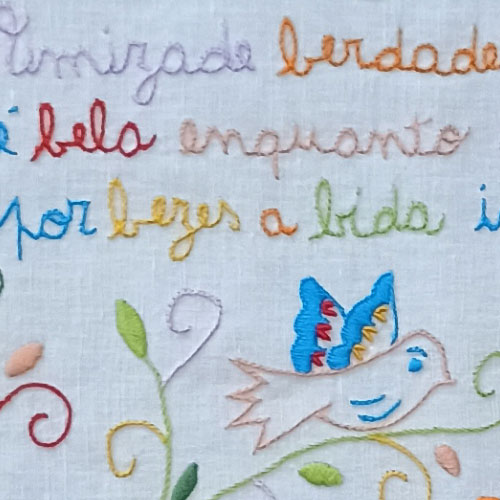 Amizade berdade
é bela enquanto
por bezes a bida i